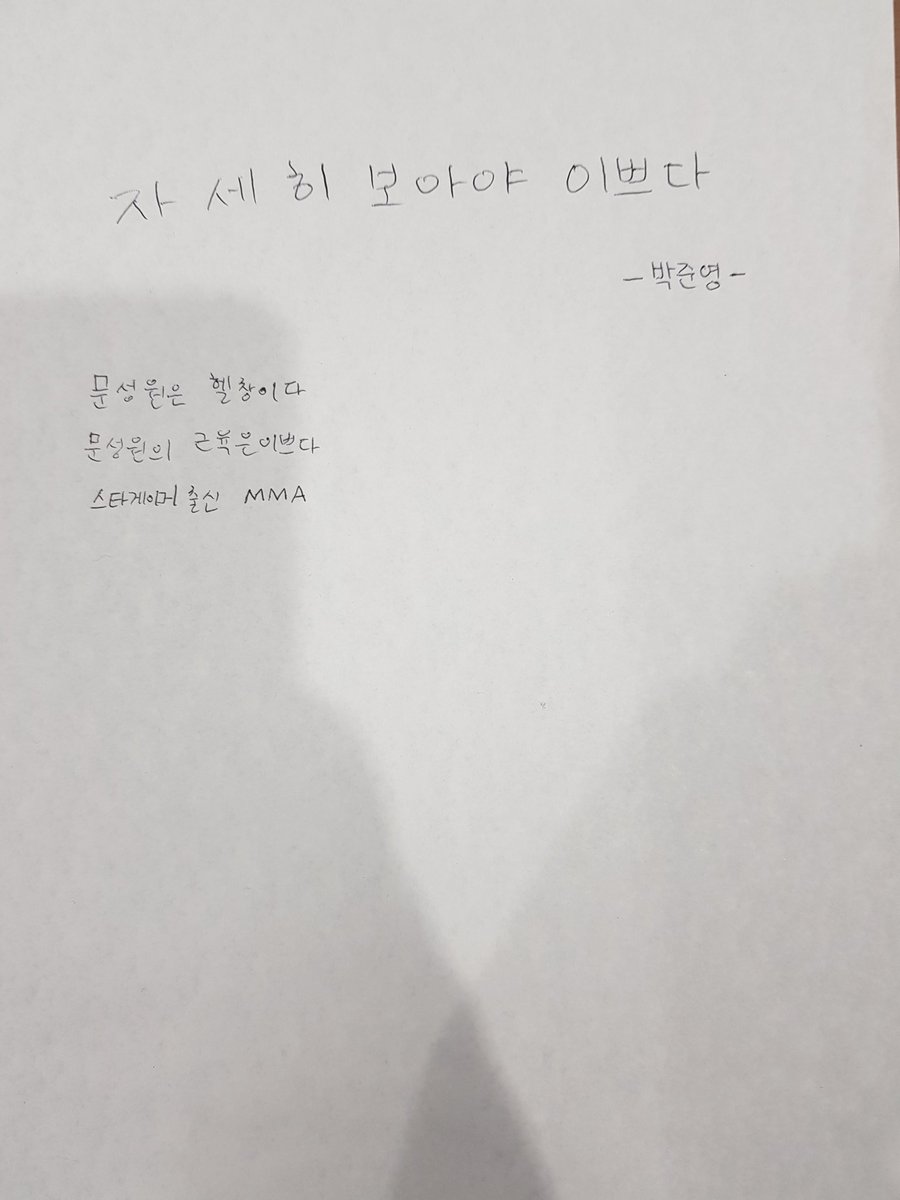 자세히 보아야 이쁘다
- 박준영 -
문성원은 헬창이다
문성원의 근육은이쁘다
스타게이머 출신 MMA